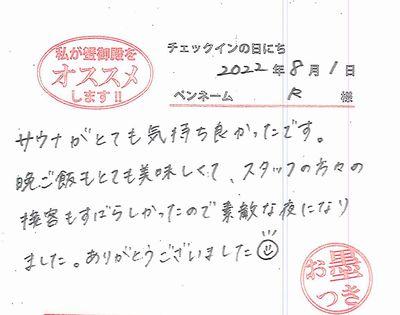 私が蟹御殿を
オススメ
します!!
チェックインの日にち
2022年8月1日
ペンネーム R 様
サウナがとても気持ち良かったです。
晩ご飯もとても美味しくて、スタッフの方々の
接客もすばらしかったので素敵な夜になり
ました。ありがとうございました
お墨
つき